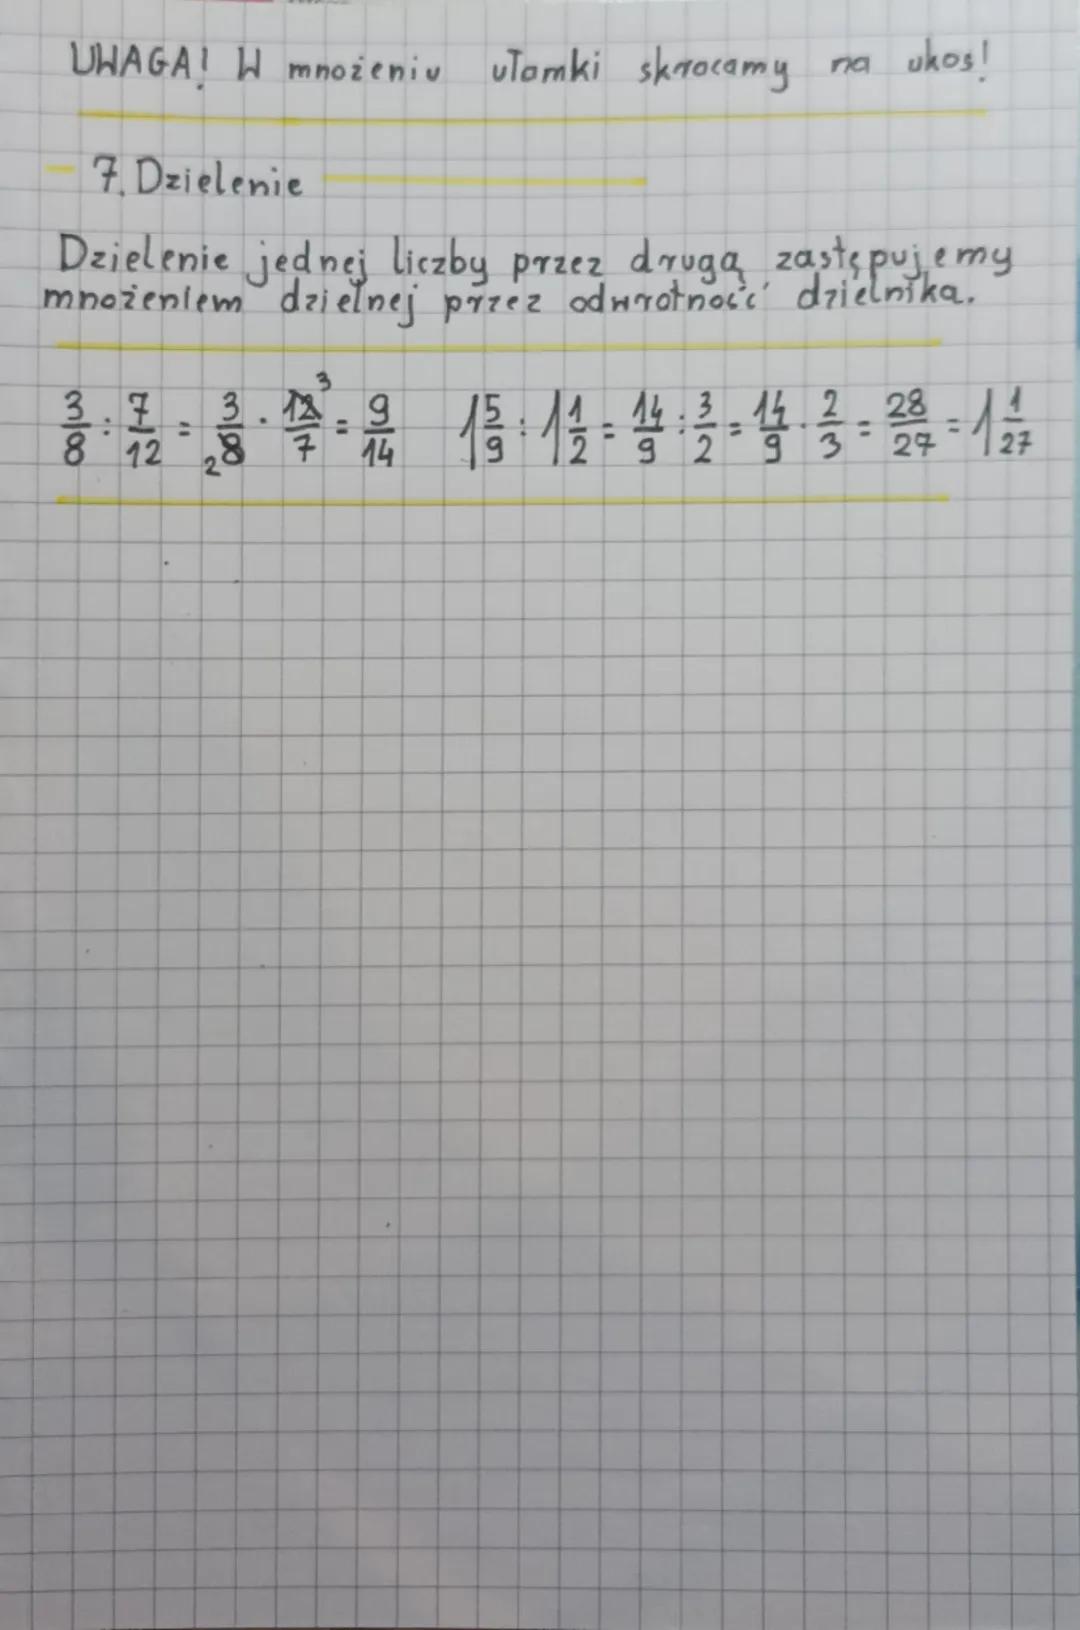 UWAGA! W mnożeniu ułamki skracamy na ukos!
7. Dzielenie
Dzielenie jednej liczby przez drugą zastępujemy
mnożeniem dzielnej przez odwrotność dzielnika.
3/8 : 7/12 = 3/8 2 · 12/7 3 = 9/14  1 5/9 : 1 1/2 = 14/9 : 3/2 = 14/9 · 2/3 = 28/27 = 1 1/27